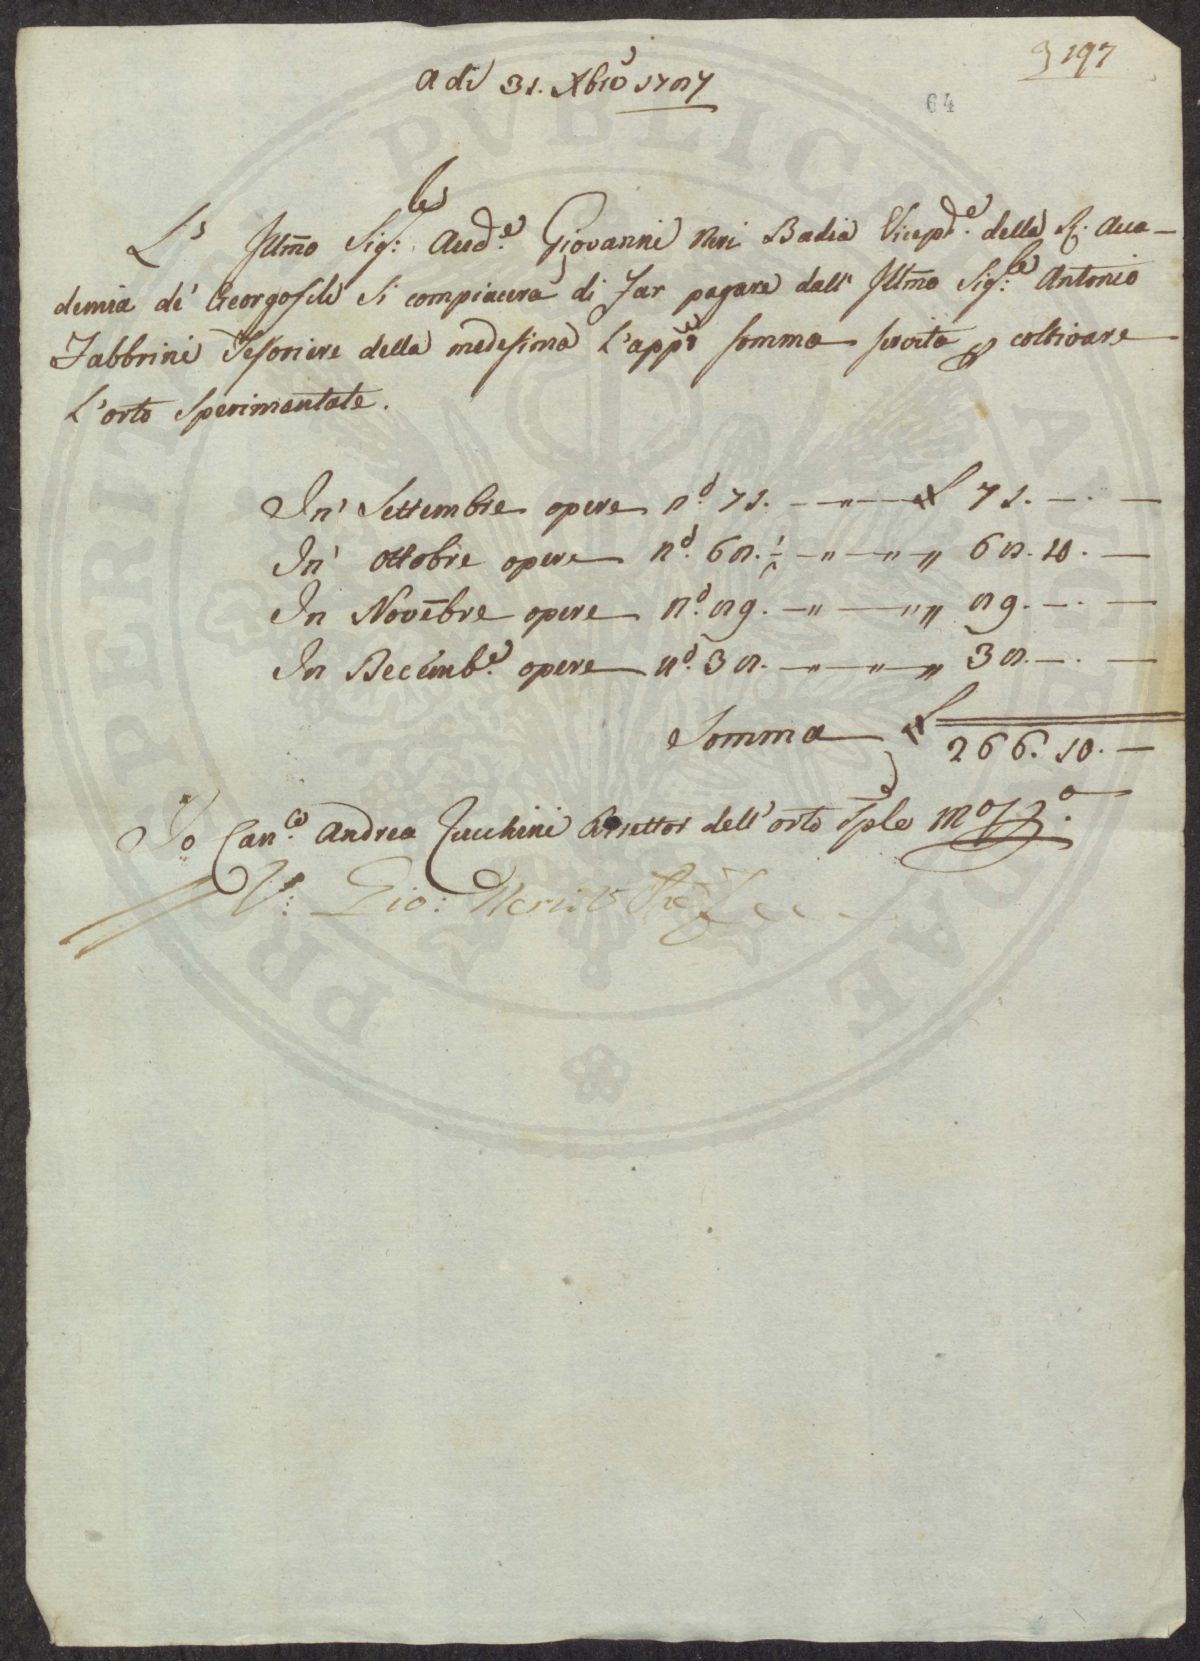 197
a di 31. Xbre 1787
64
L' Illmo Sig:re Aud.e Giovanni Neri Badia Vicepd.e della R. Acca-
demia de' Georgofili si compiacerà di far pagare dall' Illmo Sig:re Antonio
Fabbrini Tesoriere della medesima l'appiè somma servita p coltivare
L'orto Sperimentale.
In Settembre opere n.o 71. £ 71. — —
In Ottobre opere n.o 68. ½ " 68. 10. —
In Novēbre opere n.o 89. " 89. — —
In Decemb.e opere n.o 38. " 38. — —
Somma £ 266. 10. —
Io Can.co Andrea Zucchini Direttor dell'orto Sple
V: Gio: Neri
PROSPERITATI PVBLICAE AVGENDAE